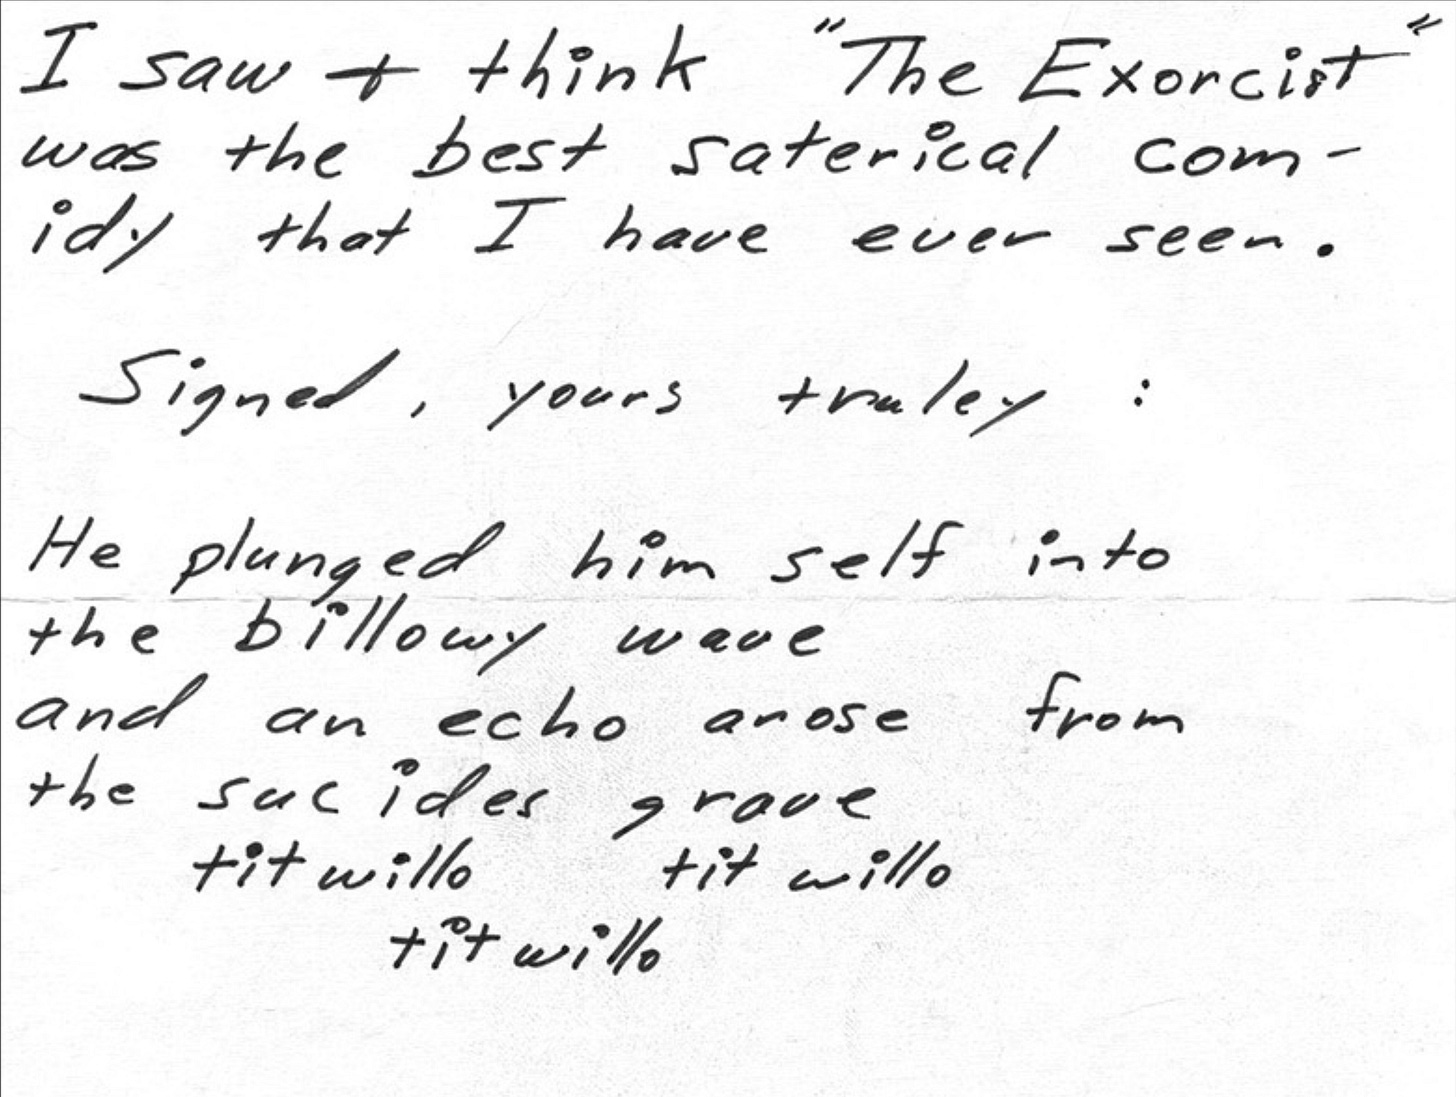 I saw + think "The Exorcist"
was the best saterical com-
idy that I have ever seen.
Signed, yours truley :
He plunged him self into
the billowy wave
and an echo arose from
the sucides grave
tit willo tit willo
tit willo